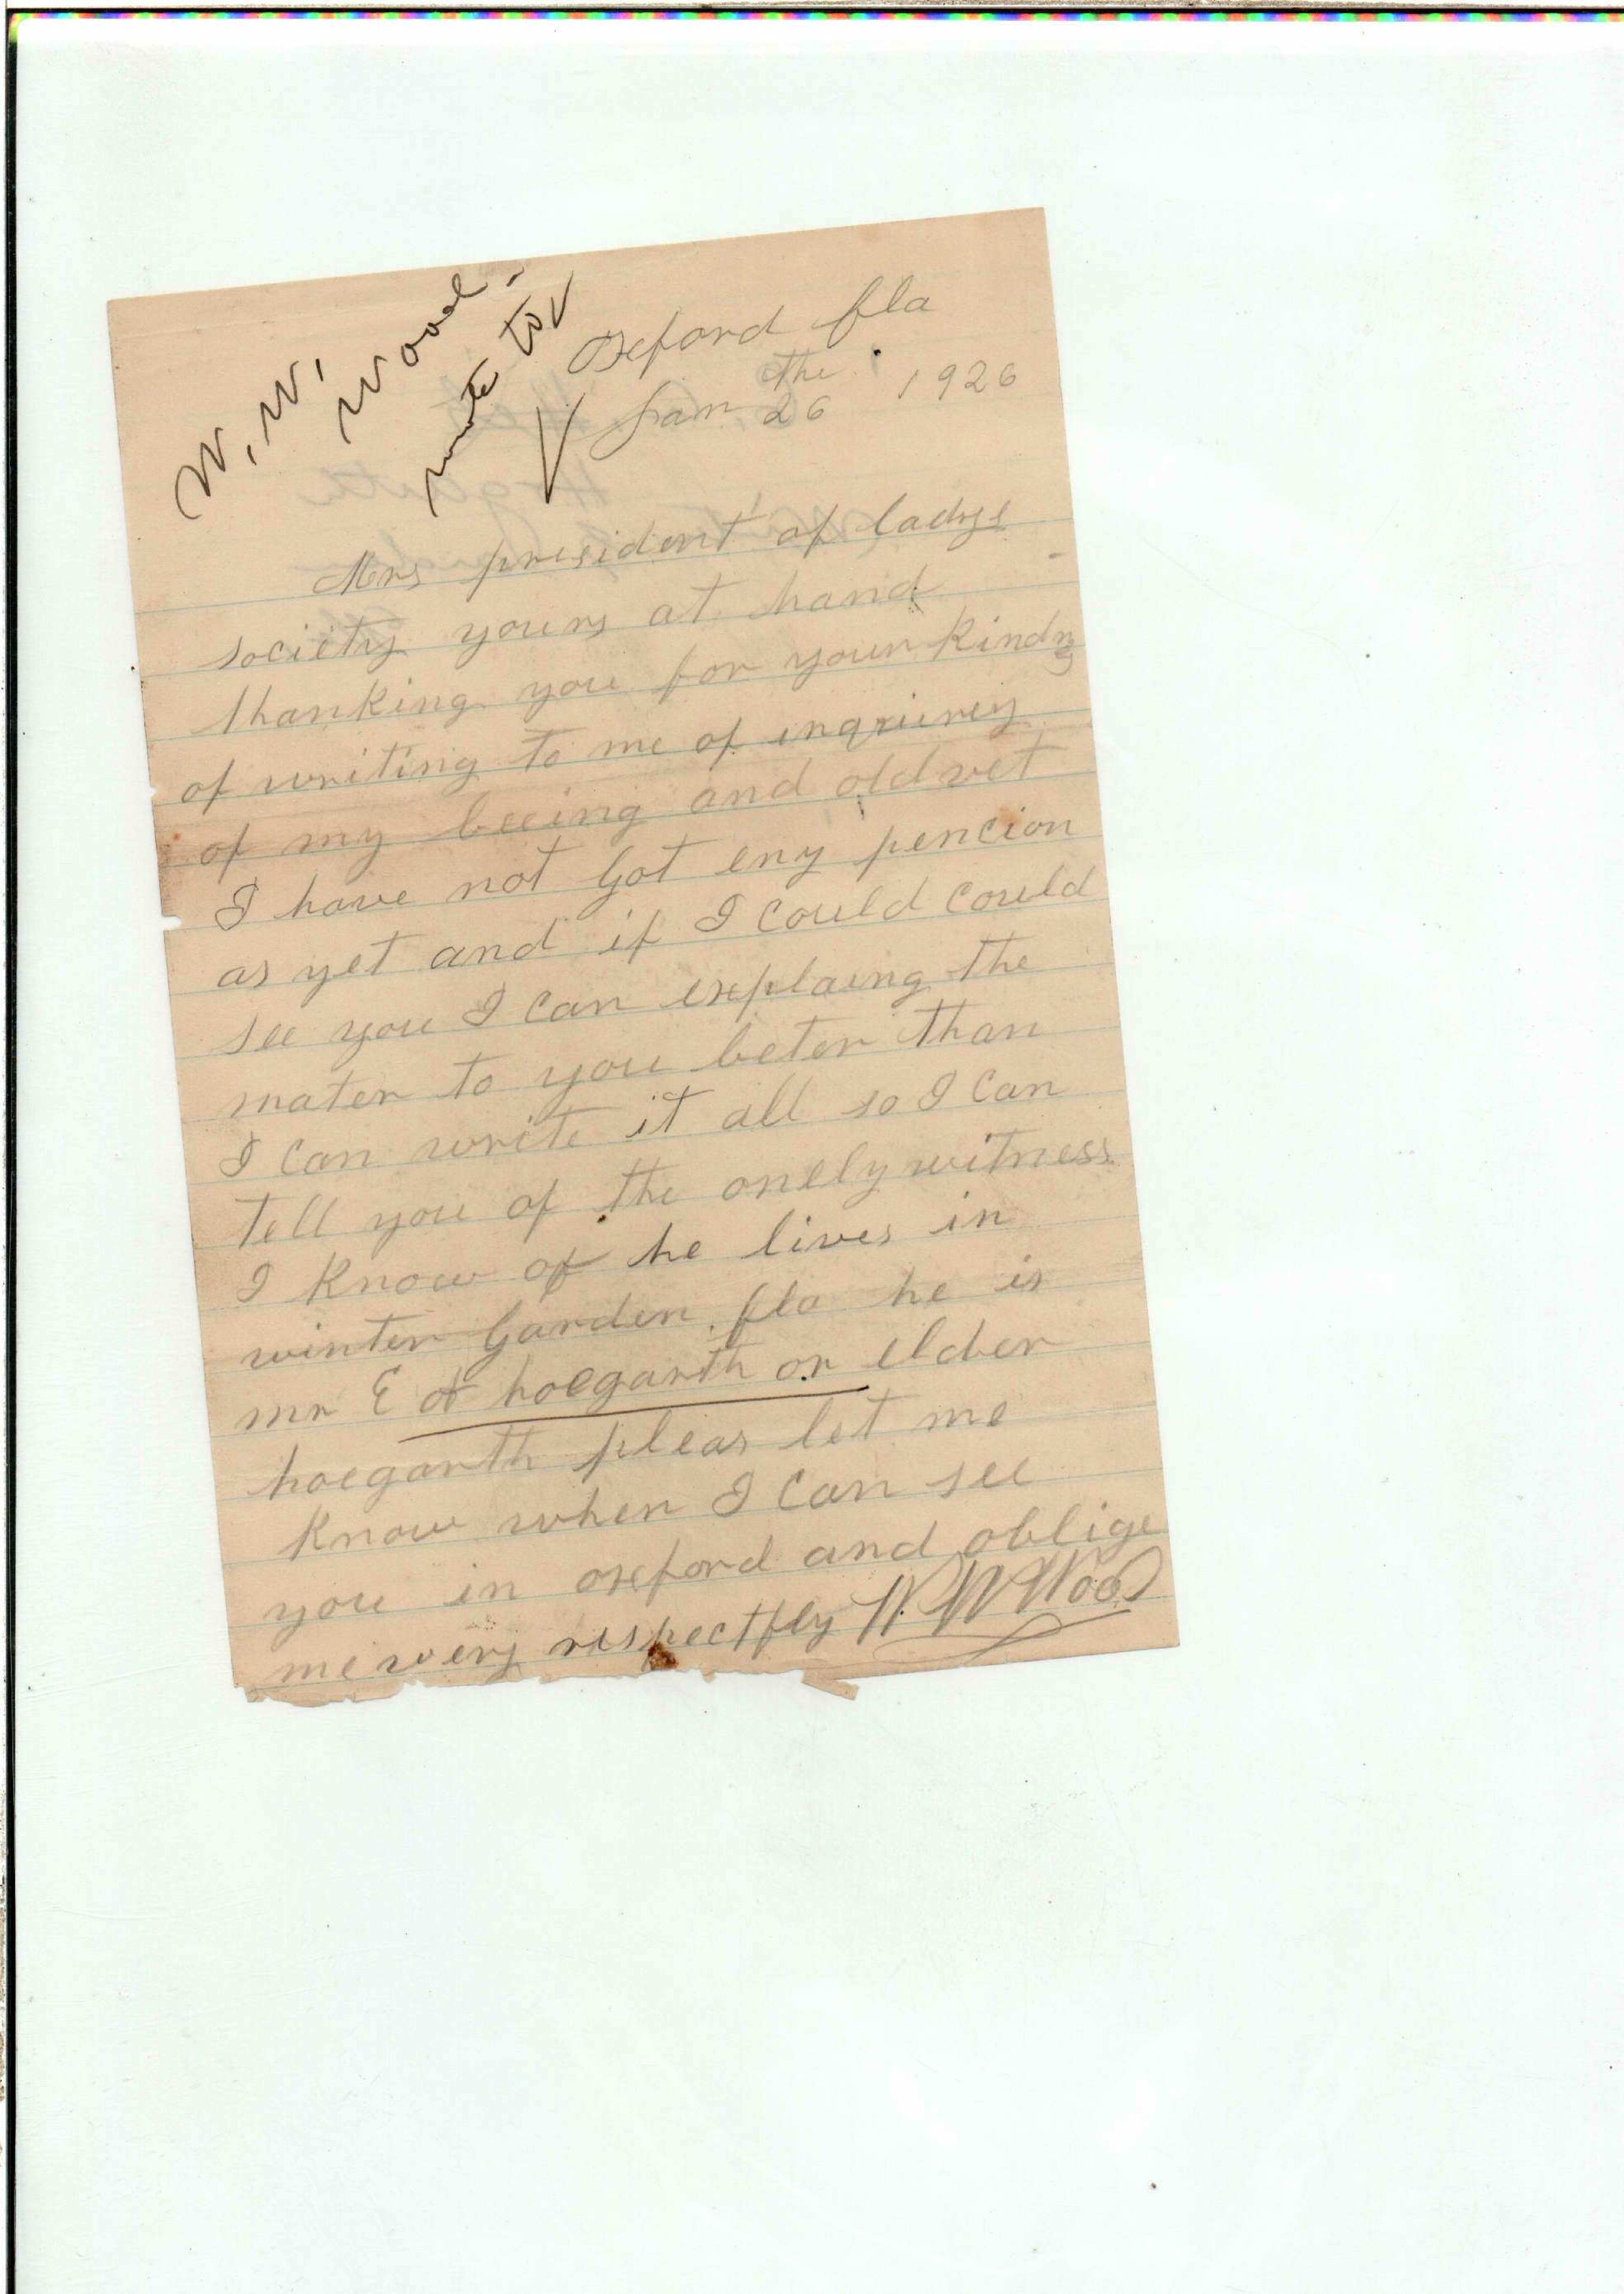 W. W.
Wood -
write to
Oxford fla
the
Jan 26 1926
Mrs president of ladys
society yours at hand
thanking you for your kindns
of writing to me of inqruirey
of my beeing and old vet
I have not got eny pencion
as yet and if I could could
see you I can explaing the
mater to you beter than
I can write it all so I can
tell you of the onely witness
I know of he lives in
winter Garden fla he is
mr E hoegarth or elder
hoegarth pleas let me
know when I can see
you in oxford and oblige
me very respectfly W W Wood